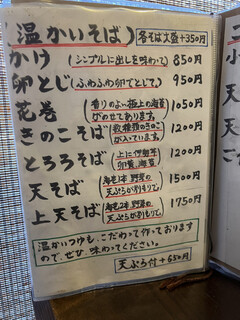 (温かいそば) 各そば大盛+350円
かけ (シンプルに出しを味わって) 850円
卵とじ (ふわふわ卵でとじて。) 950円
花巻 (香りのよい極上の海苔がのせてあります。) 1050円
きのこそば (数種類のきのこが入っています。) 1200円
とろろそば (上に伊勢芋 卵黄、海苔) 1200円
天そば (海老1本 野菜の天ぷらがありもりで。) 1500円
上天そば (海老2本 野菜の天ぷらがありもりで。) 1750円
温かいつゆも、こだわって作っております
ので、ぜひ、味わってください。
天ぷら付+650円